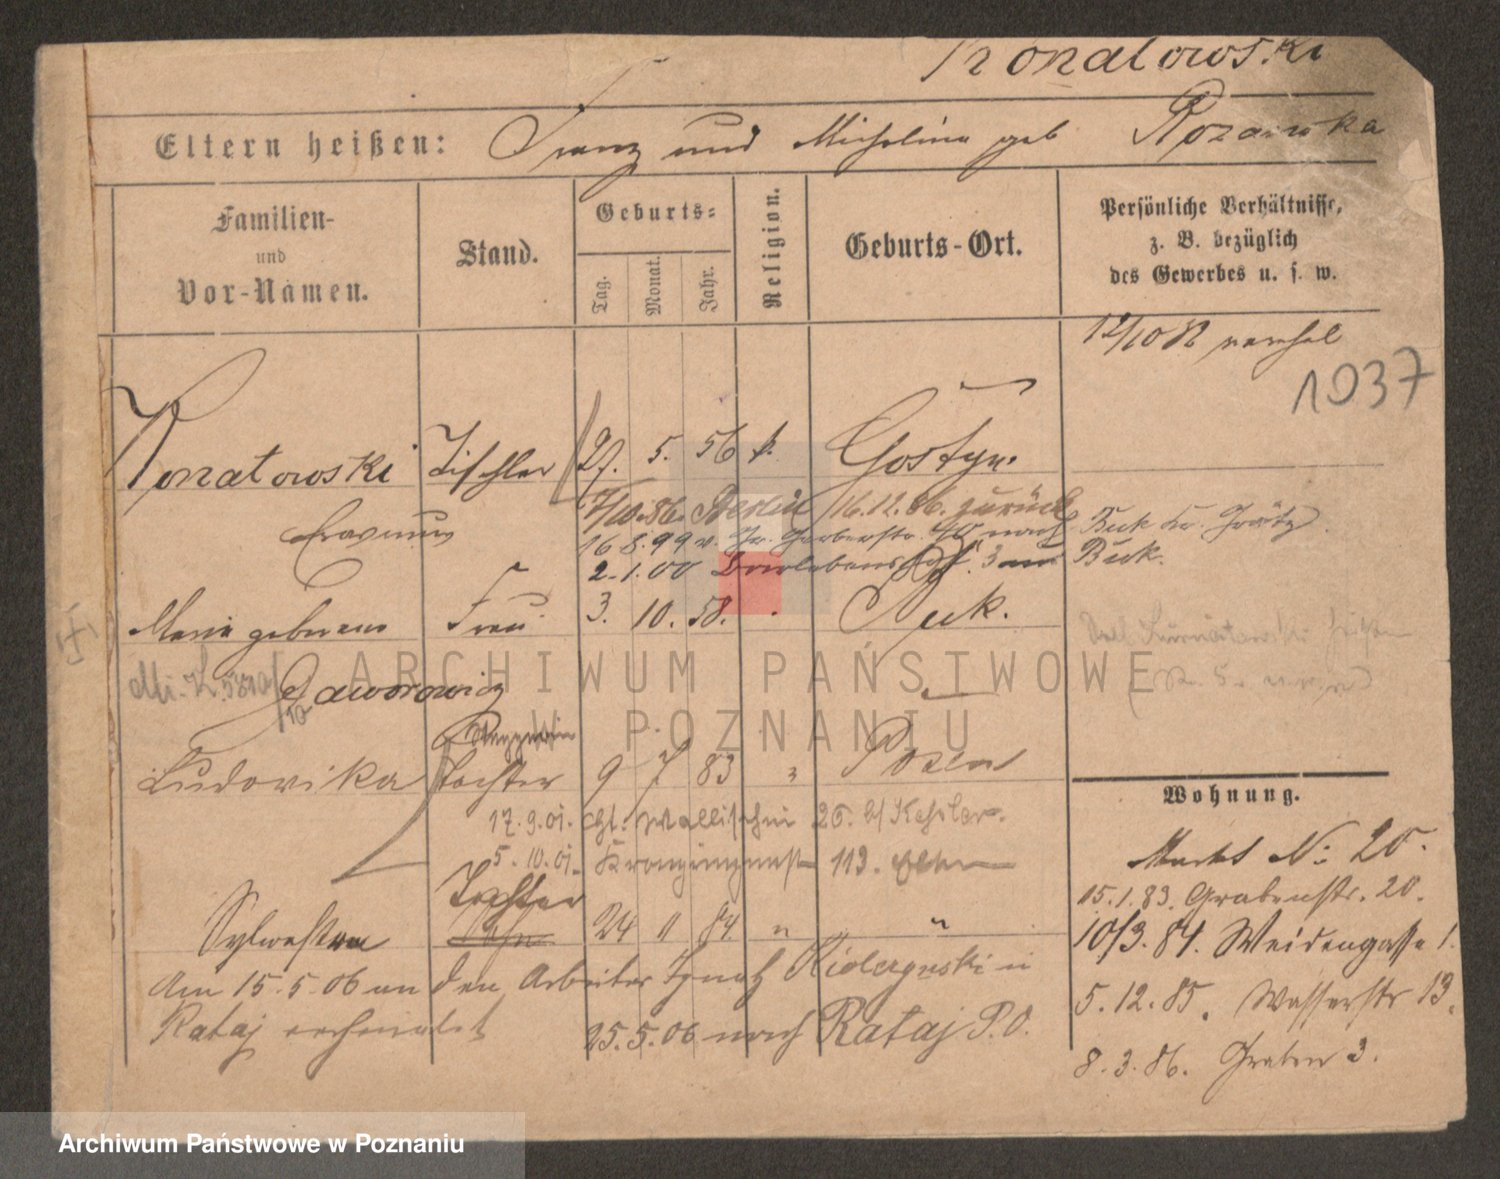 Konatowski
Eltern heißen: Franz und Michalina geb
Familien-
und
Vor-Namen.
Stand.
Geburts-
Tag.
Monat.
Jahr.
Religion.
Geburts-Ort.
Persönliche Verhältnisse,
z. B. bezüglich
des Gewerbes u. s. w.
1037
Konatowski Tischler 27. 5. 56 k. Gostyn.
7/10.86. Berlin 16.12.86. zurück
Erasmus
16 8.99 v. Gr. Gerberstr. 40 nach Buk Kr. Grätz.
2.1.00 3 Buk.
Marie geborene Frau 3. 10. 58. Buk.
Jaworowicz
Ludovika Tochter 9 7 83 " Posen
Wohnung.
17.9.01. Wallischei 26. b/ Kessler.
5.10.01. 113.
Markt No. 20.
15.1.83. Grabenstr. 20.
Tochter
Sylwestra Sohn 24 11 84. " "
10/3.84. Weidengasse 1.
Am 15.5.06 an den Arbeiter Ignatz
5.12.85. Wasserstr 13.
Rataj verheiratet 25.5.06 nach Rataj P.O.
8.3.86. Graben 3.
ARCHIWUM PAŃSTWOWE
W POZNANIU
Archiwum Państwowe w Poznaniu